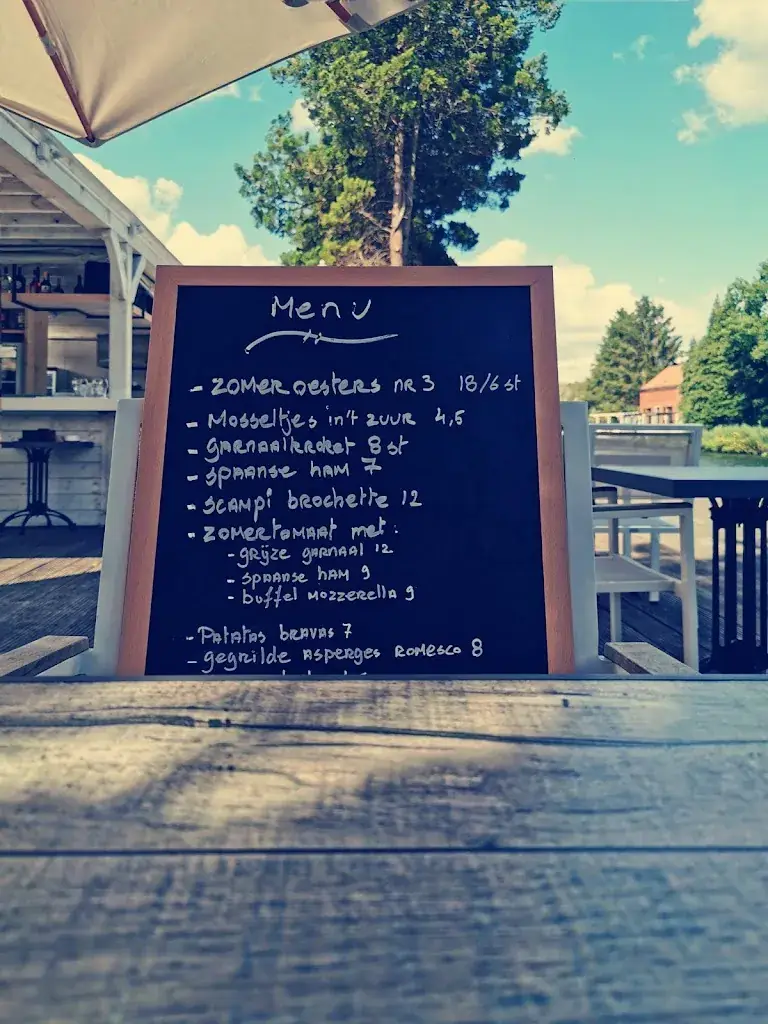 Menu
- ZOMEROESTERS NR 3 18/6 st
- Mosseltjes in't zuur 4,5
- GARNAALKROKET 8 st
- SPAANSE HAM 7
- SCAMPI brochette 12
- ZOMERTOMAAT met:
- grijze garnaal 12
- SPAANSE HAM 9
- buffel MOZZERELLA 9
- PATATAS BRAVAS 7
- gegrilde ASPERGES ROMESCO 8